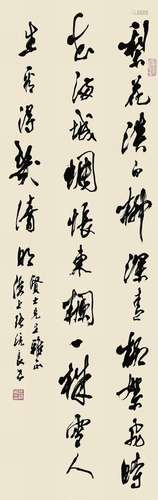 梨花淡白柳深青柳絮飛時
花滿城惆悵東欄一株雪人
生看得幾清明
賢士兄